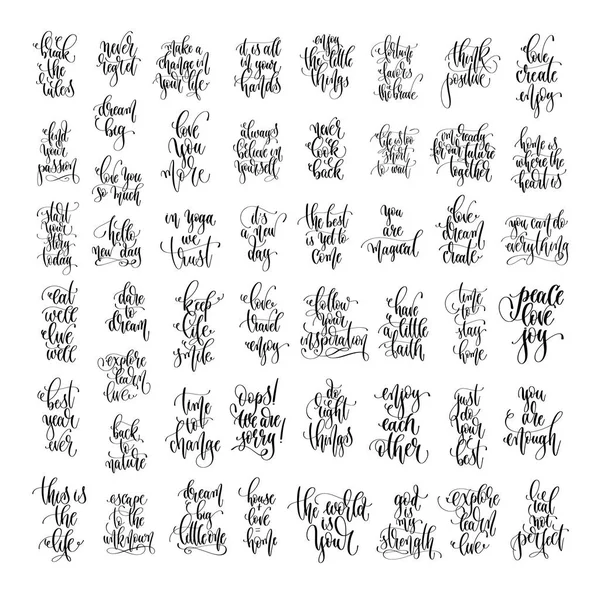 break
the
rules
never
regret
make a
change in
your life
it is all
in your
hands
enjoy
the little
things
fortune
favors
the brave
think
positive
love
create
enjoy
find
your
passion
dream
big
love you
so much
love
you
more
always
believe in
yourself
never
look
back
life is too
short
to wait
i'm ready
for our future
together
home is
where the
heart is
start
your
story
today
hello
new day
in yoga
we
trust
it's
a new
day
the best
is yet to
come
you
are
magical
love
dream
create
you can do
everything
eat
well
live
well
dare
to
dream
explore
learn
live
keep
life
smile
love
travel
enjoy
follow
your
inspiration
have
a little
faith
time
to
stay
home
peace
love
joy
best
year
ever
back
to
nature
time
to
change
Oops!
we are
sorry!
do
right
things
enjoy
each
other
just
do
your
best
you
are
enough
this is
the
life
escape
to the
unknown
dream
big
little one
house
+
love
=
home
the world
is
your
god
is my
strength
explore
learn
live
be
real
not
perfect